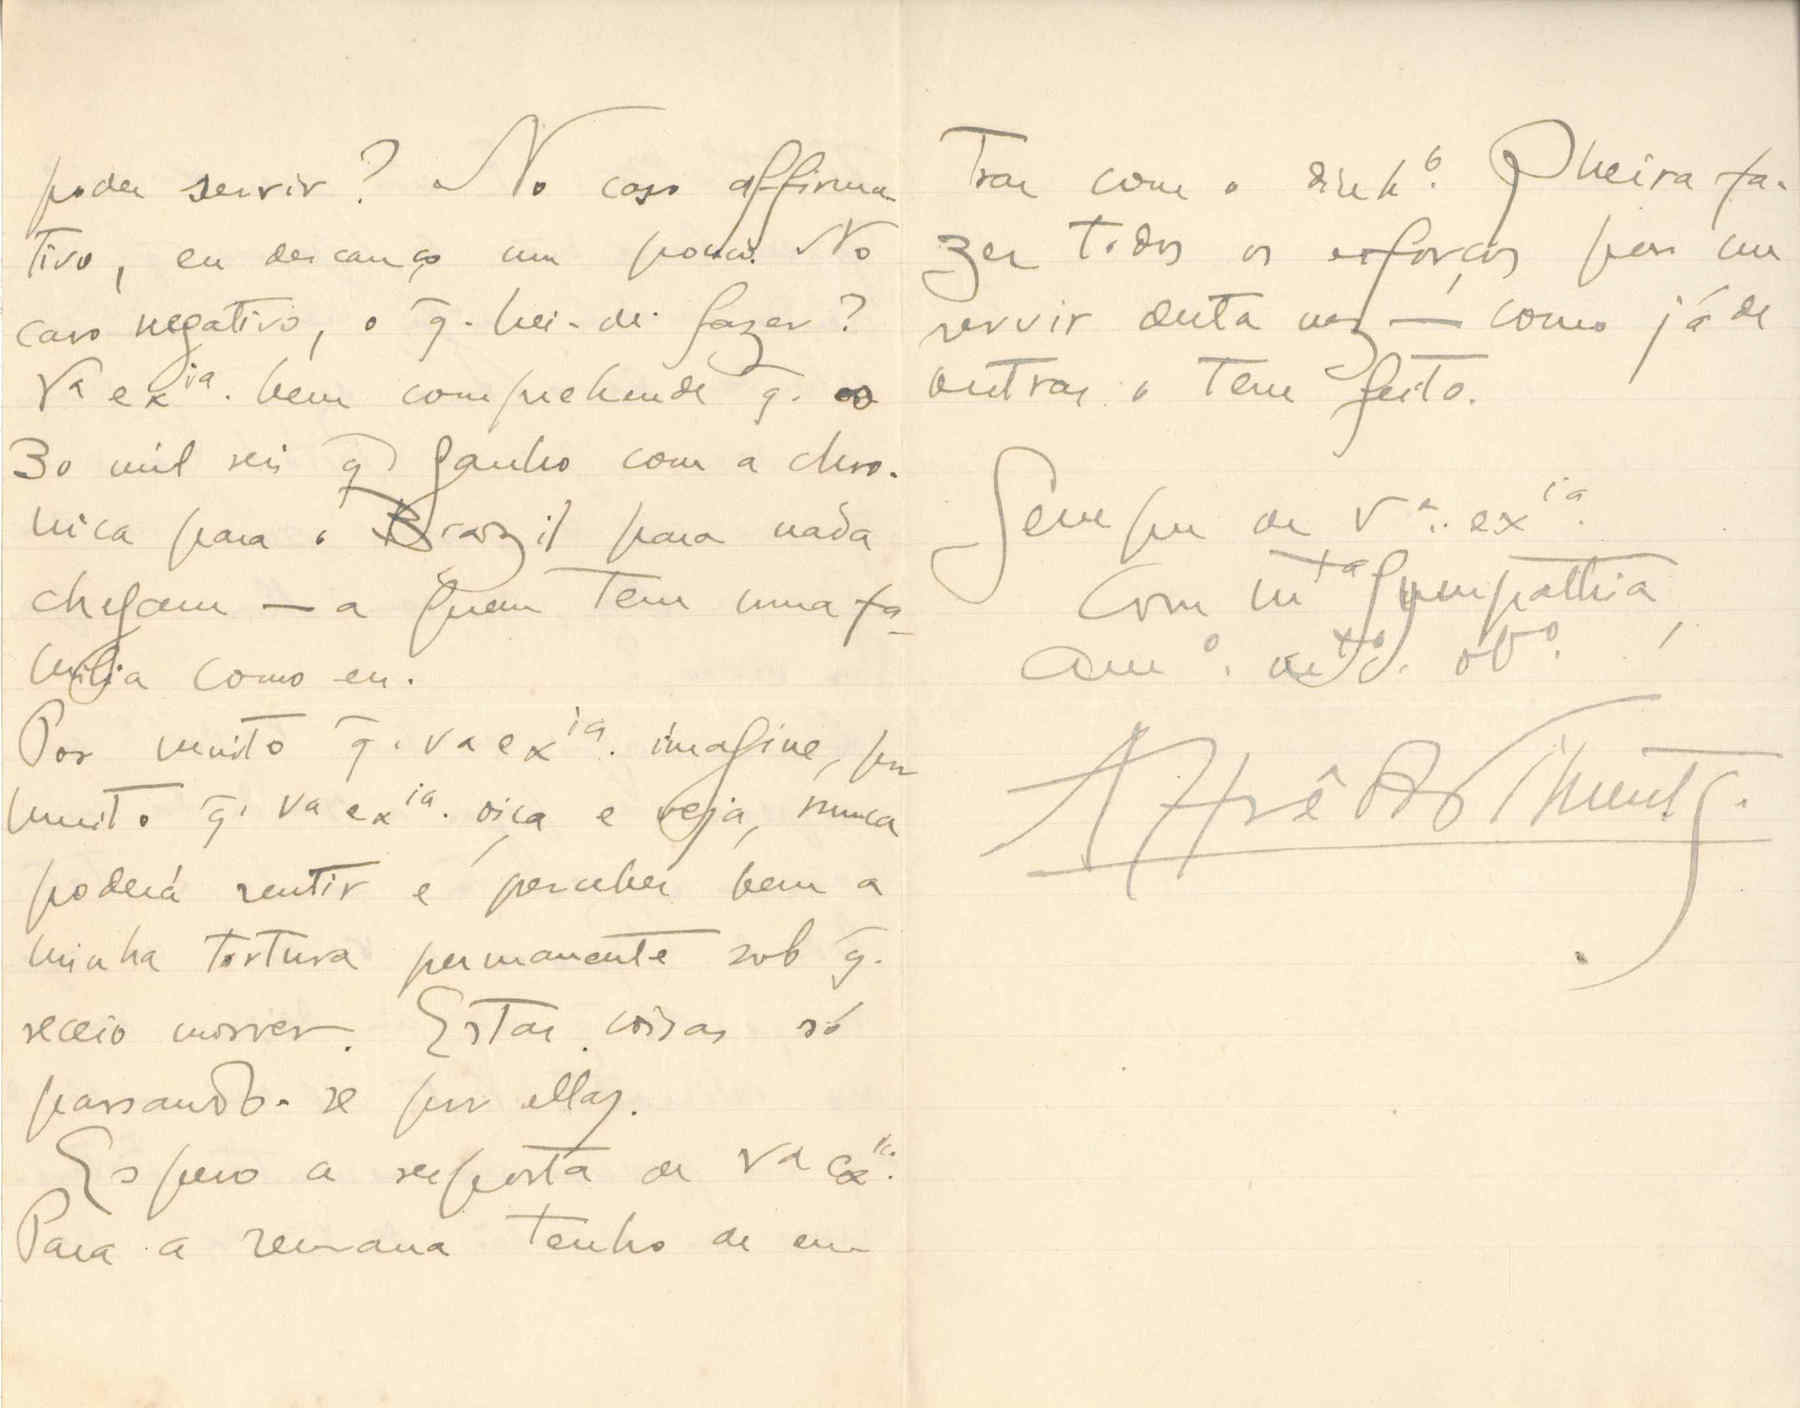 poder servir? No caso affirma-
tivo, eu descanço um pouco. No
caso negativo, o q̃. hei-de fazer?
Va exia. bem comprehende q̃. os
30 mil reis q̃ ganho com a chro-
nica para o Brazil para nada
chegam — a quem tem uma fa-
milia como eu.
Por muito q̃. va exia. imagine, por
muito q̃. va exia. oiça e veja, nunca
poderá sentir e perceber bem a
minha tortura permanente sob q̃.
receio morrer. Estas coisas só
passando-se por ellas.
Espero a resposta de va exia.
Para a semana tenho de en-
trar com o dinho. Queira fa-
zer todos os esforços por me
servir desta vez — como já de
outras o tem feito.
Sempre de Va. exia.
Com mta sympathia,
amo. mto. obo.
Alfrêdo Pimenta.